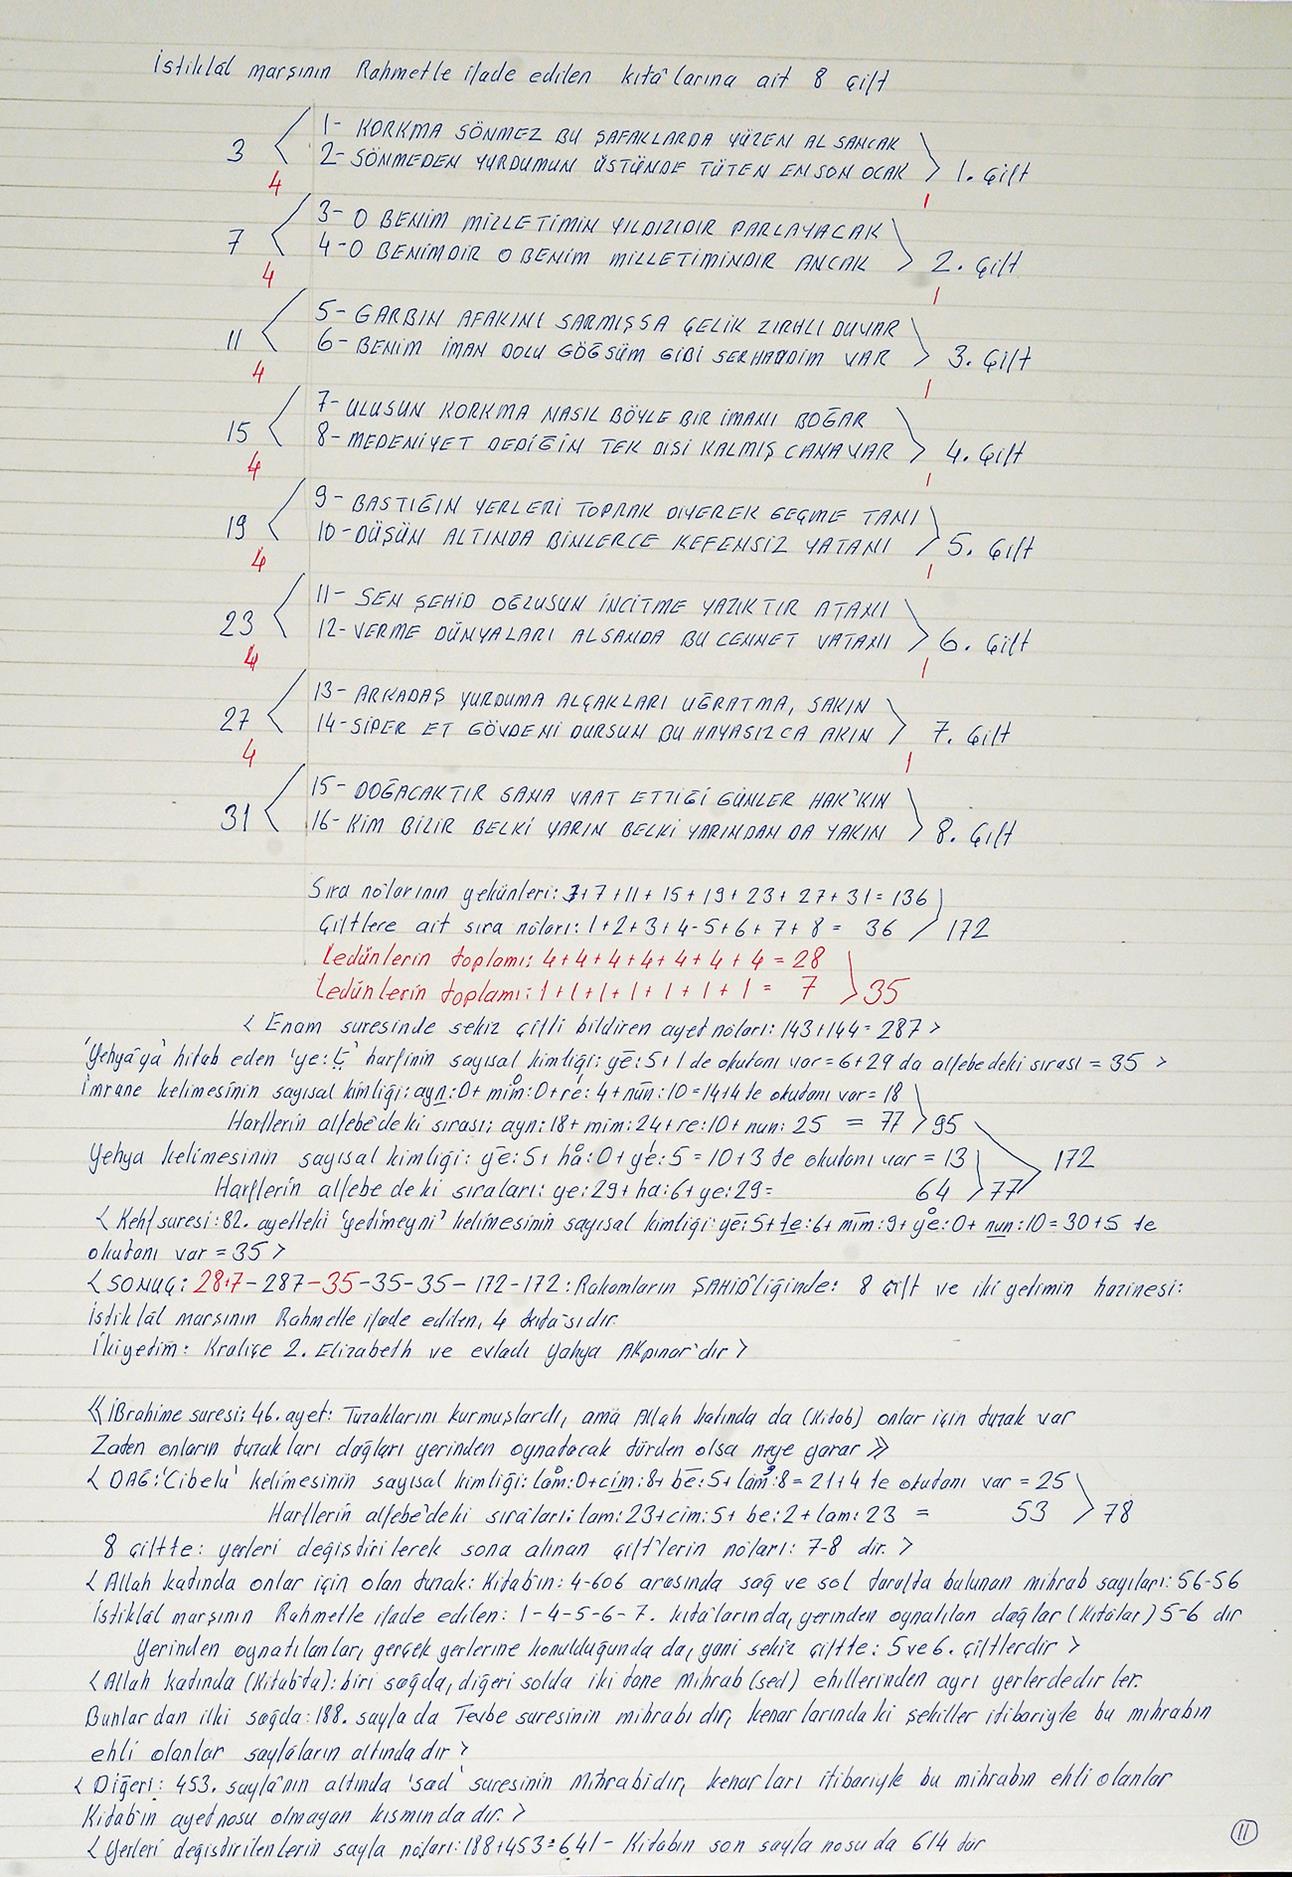 İstiklâl marşının Rahmetle ifade edilen kıtâ'larına ait 8 çift
3 1- KORKMA SÖNMEZ BU ŞAFAKLARDA YÜZEN AL SANCAK
2- SÖNMEDEN YURDUMUN ÜSTÜNDE TÜTEN EN SON OCAK 1. Çift
4 1
7 3- O BENİM MİLLETİMİN YILDIZIDIR PARLAYACAK
4- O BENİMDİR O BENİM MİLLETİMİNDİR ANCAK 2. Çift
4 1
11 5- GARBIN AFAKINI SARMIŞSA ÇELİK ZIRHLI DUVAR
6- BENİM İMAN DOLU GÖĞSÜM GİBİ SERHADDİM VAR 3. Çift
4 1
15 7- ULUSUN KORKMA NASIL BÖYLE BİR İMANI BOĞAR
8- MEDENİYET DEDİĞİN TEK DİSİ KALMIŞ CANAVAR 4. Çift
4 1
19 9- BASTIĞIN YERLERİ TOPRAK DİYEREK GEÇME TANI
10- DÜŞÜN ALTINDA BİNLERCE KEFENSİZ YATANI 5. Çift
4 1
23 11- SEN ŞEHİD OĞLUSUN İNCİTME YAZIKTIR ATANI
12- VERME DÜNYALARI ALSANDA BU CENNET VATANI 6. Çift
4 1
27 13- ARKADAŞ YURDUMA ALÇAKLARI UĞRATMA, SAKIN
14- SİPER ET GÖVDENİ DURSUN BU HAYASIZCA AKIN 7. Çift
4 1
31 15- DOĞACAKTIR SANA VAAT ETTİĞİ GÜNLER HAK'KIN
16- KİM BİLİR BELKİ YARIN BELKİ YARINDAN DA YAKIN 8. Çift
Sıra nolarının yekünleri: 3+7+11+15+19+23+27+31=136
Çiftlere ait sıra noları: 1+2+3+4-5+6+7+8= 36 172
Ledünlerin toplamı: 4+4+4+4+4+4+4=28
Ledünlerin toplamı: 1+1+1+1+1+1+1= 7 35
< Enam suresinde sekiz çifti bildiren ayet noları: 143+144=287 >
'Yehyâ'ya' hitab eden 'ye: harfinin sayısal kimliği: yē: 5+1 de okutanı var=6+29 da alfebedeki sırası = 35 >
İmrane kelimesinin sayısal kimliği: ayn: 0+ mim: 0+re: 4+nūn: 10=14+4 te okutanı var= 18
Harflerin alfebe'deki sırası: ayn: 18+ mim: 24+re: 10+ nun: 25 = 77 95
Yehya kelimesinin sayısal kimliği: yē: 5+ hå: 0+yē: 5=10+3 te okutanı var = 13 172
Harflerin alfebe deki sıraları: ye: 29+ha: 6+ye: 29= 64 77
< Kehf suresi: 82. ayetteki 'yetimeyni' kelimesinin sayısal kimliği: yē: 5+te: 6+ mīm: 9+ yē: 0+ nun: 10=30+5 te
okutanı var = 35 >
< SONUÇ: 28+7-287-35-35-35-172-172: Rakamların ŞAHİD'liğinde: 8 çift ve iki yetimin hazinesi:
İstiklâl marşının Rahmetle ifade edilen, 4 kıta'sıdır.
İki yetim: Kraliçe 2. Elizabeth ve evladı Yahya AKpınar'dır >
《 İBrahime suresi: 46. ayet: Tuzaklarını kurmuşlardı, ama Allah katında da (kitab) onlar için tuzak var
Zaten onların tuzakları dağları yerinden oynatacak türden olsa neye yarar 》
< DAĞ: 'Cibelu' kelimesinin sayısal kimliği: låm: 0+cim: 8+ bē: 5+ lam: 8=21+4 te okutanı var = 25
Harflerin alfebe'deki sıraları: lam: 23+cim: 5+ be: 2+lam: 23 = 53 78
8 çiftte: yerleri değiştirilerek sona alınan çift'lerin noları: 7-8 dir. >
< Allah katında onlar için olan tuzak: Kitab'ın: 4-606 arasında sağ ve sol tarafta bulunan mihrab sayıları: 56-56
İstiklâl marşının Rahmetle ifade edilen: 1-4-5-6-7. kıta'larında, yerinden oynatılan dağlar (kıtâlar) 5-6 dır
Yerinden oynatılanları, gerçek yerlerine konulduğunda da, yani sekiz çiftte: 5 ve 6. çiftlerdir >
< Allah katında (Kitab'ta): biri sağda, diğeri solda iki tane Mihrab (sed) ehillerinden ayrı yerlerdedir ler.
Bunlardan ilki sağda: 188. sayfa da Tevbe suresinin mihrabı dır, kenarlarındaki şekiller itibariyle bu mihrabın
ehli olanlar sayfaların altında dır >
< Diğeri: 453. sayfâ'nın altında 'sad' suresinin Mihrabıdır, kenarları itibariyle bu mihrabın ehli olanlar
Kitab'ın ayet nosu olmayan kısmında dır. >
< Yerleri değiştirilenlerin sayfa noları: 188+453=641- Kitabın son sayfa nosu da 614 tür
11